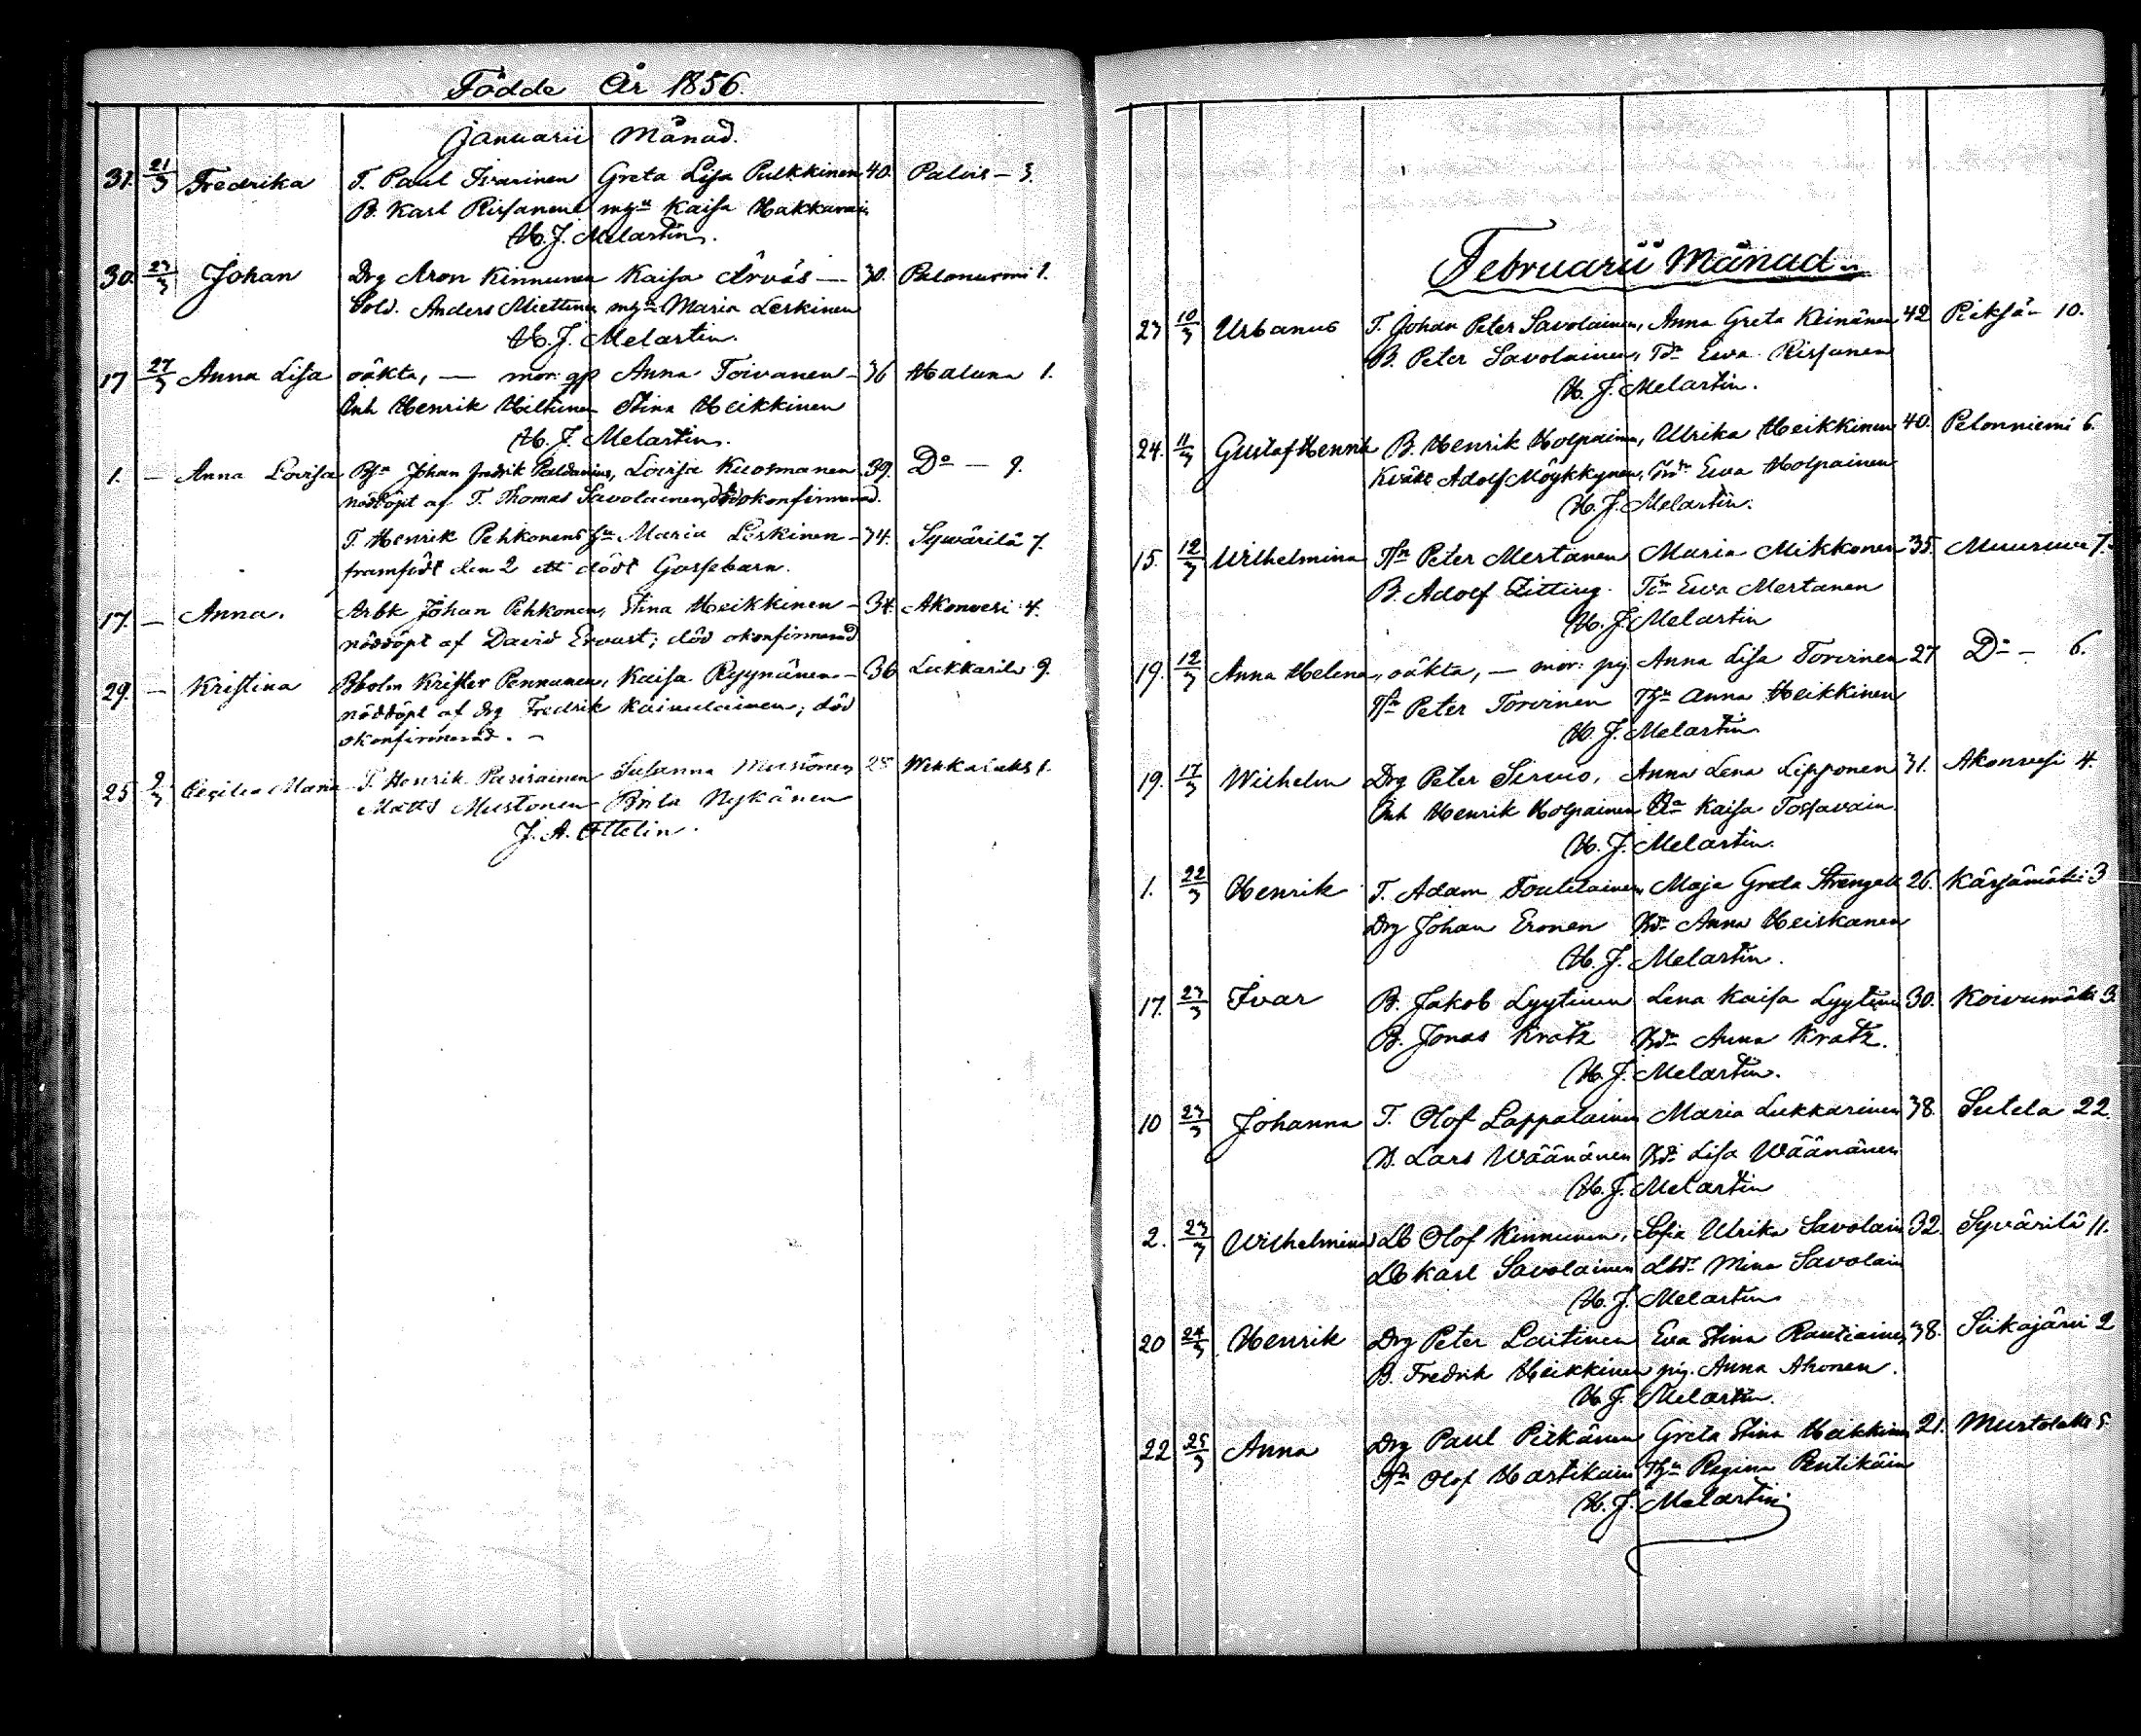 Födde År 1856.
Januarii Månad.
31. 21/3 Fredrika T. Paul Ivarinen Greta Lisa Pulkkinen 40. Palois – 3.
B. Karl Rissanen mgn Kaisa Hakkarain
H. J. Melartin.
30. 23/3 Johan Drg Aron Kinnunen Kaisa Arvås — 30. Palonurmi 1.
Sold. Anders Miettinen mgn Maria Leskinen
H. J. Melartin.
17 27/3 Anna Lisa oäkta, — mor: gp Anna Toivanen – 36 Haluna 1.
Inh Henrik Hiltunen Stina Heikkinen
H. J. Melartin.
1. — Anna Lovisa Bsn Johan Fredrik Paldanius, Lovisa Kuosmanen 39. Do — 9.
nöddöpt af T. Thomas Savolainen, död okonfirmerad.
T. Henrik Pehkonens hu Maria Leskinen – 34. Syvärilä 7.
framfödt den 2 ett dödt Gossebarn.
17. — Anna. Arbk Johan Pehkonen, Stina Heikkinen – 34. Akonvesi 4.
nöddöpt af David Ervast; död okonfirmerad
29. — Kristina Bholm Krister Pennanen, Kaisa Ryynänen – 36 Lukkarila 9.
nöddöpt af drg Fredrik Kainulainen; död
okonfirmerad. –
25 9/3 Cecilia Maria T. Henrik Parviainen Susanna Mustonen 25 Wekkalaks 1.
Matts Mustonen Brita Nykänen
J. A. Ottelin.
Februarii Månad.
23 10/3 Urbanus T. Johan Peter Savolainen, Anna Greta Keinänen 42 Pieksän 10.
B. Peter Savolainen, Tdr Ewa Rissanen
H. J. Melartin.
24. 11/3 Gustaf Henrik B. Henrik Holpainen, Ulrika Heikkinen 40. Pelonniemi 6.
Adolf Möykkynen, Ewa Holpainen
H. J. Melartin.
15. 12/3 Wilhelmina Tsn Peter Mertanen Maria Mikkonen 35. Muuruvi 7.
B. Adolf Zitting. Tdr Ewa Mertanen
H. J. Melartin
19. 12/3 Anna Helena, oäkta, — mor: pig. Anna Lisa Torvinen 27 Do – 6.
Tsn Peter Torvinen Thu Anna Heikkinen
H. J. Melartin
19. 17/3 Wilhelm Drg Peter Sirwio, Anna Lena Lipponen 31. Akonvesi 4.
Inh Henrik Holpainen Kaisa Tossavain
H. J. Melartin.
1. 22/3 Henrik T. Adam Toulilainen, Maja Greta Strengell 26. Kärsämäki 3
Drg Johan Eronen Bdr Anna Heiskanen
H. J. Melartin.
17. 23/3 Ivar B. Jakob Lyytinen Lena Kaisa Lyytinen 30. Koivumäki 3.
B. Jonas Kratz Bdr Anna Kratz.
H. J. Melartin.
10 23/3 Johanna T. Olof Lappalainen Maria Lukkarinen 38. Sutela 22.
B. Lars Wäänänen Bdr Lisa Wäänänen
H. J. Melartin
2. 23/3 Wilhelmina Lb Olof Kinnunen, Sofia Ulrika Savolain 32. Syvärilä 11.
Lb Karl Savolainen Lbdr Mina Savolain
H. J. Melartin
20 24/3 Henrik Drg Peter Laitinen Eva Stina Rautiainen 38. Siikajärvi 2
B. Fredrik Heikkinen pig. Anna Ahonen.
H. J. Melartin.
22 25/3 Anna Drg Paul Pitkänen Greta Stina Heikkinen 21. Mustolaks 5.
Tsn Olof Hartikain Thu Regina Pentikäin
H. J. Melartin.